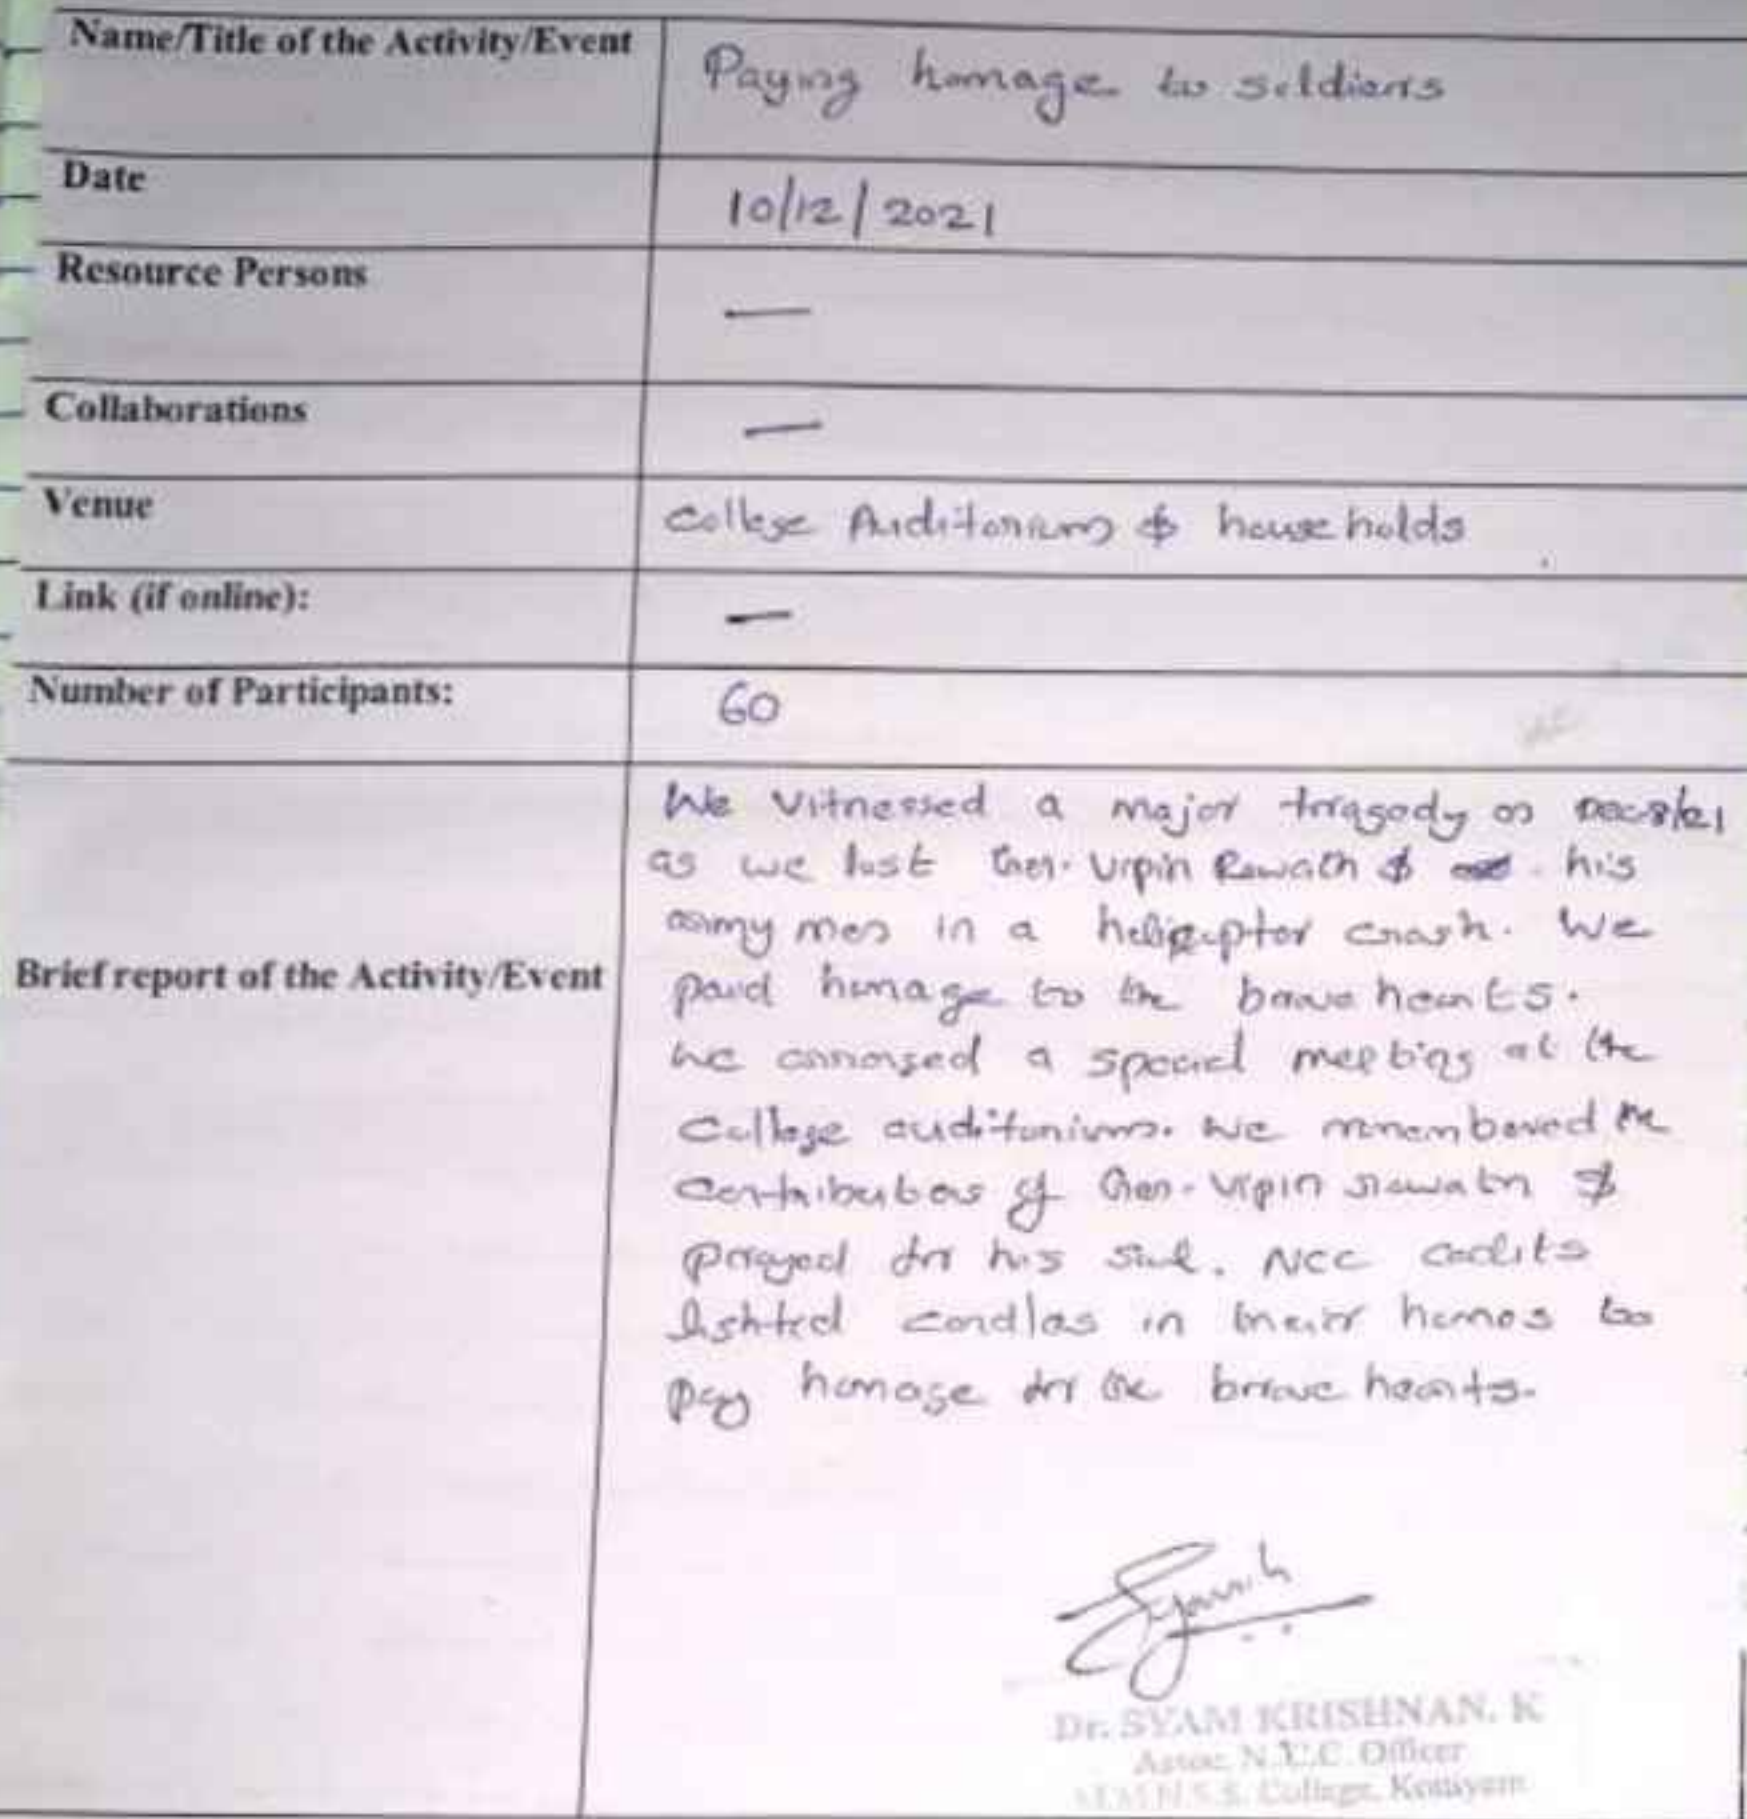 Name/Title of the Activity/Event
Paying homage to soldiers
Date
10/12/2021
Resource Persons
—
Collaborations
—
Venue
College Auditorium & households
Link (if online):
—
Number of Participants:
60
Brief report of the Activity/Event
We vitnessed a major tragedy on Dec 8/21
as we lost Gen. Vipin Rawath & his
army men in a helicoptor crash. We
paid homage to the brave hearts.
We arranged a special meeting at the
College auditorium. We remembered the
contributions of Gen. Vipin rawath &
prayed for his soul. NCC cadits
lighted candles in their homes to
pay homage for the brave hearts.
Syam.k
Dr. SYAM KRISHNAN. K
Assoc. N.C.C. Officer
M.M.N.S.S. College, Kottiyam